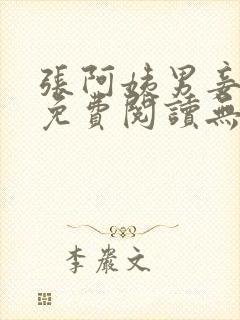 張阿姨男妾
免費閱讀無
李嚴文